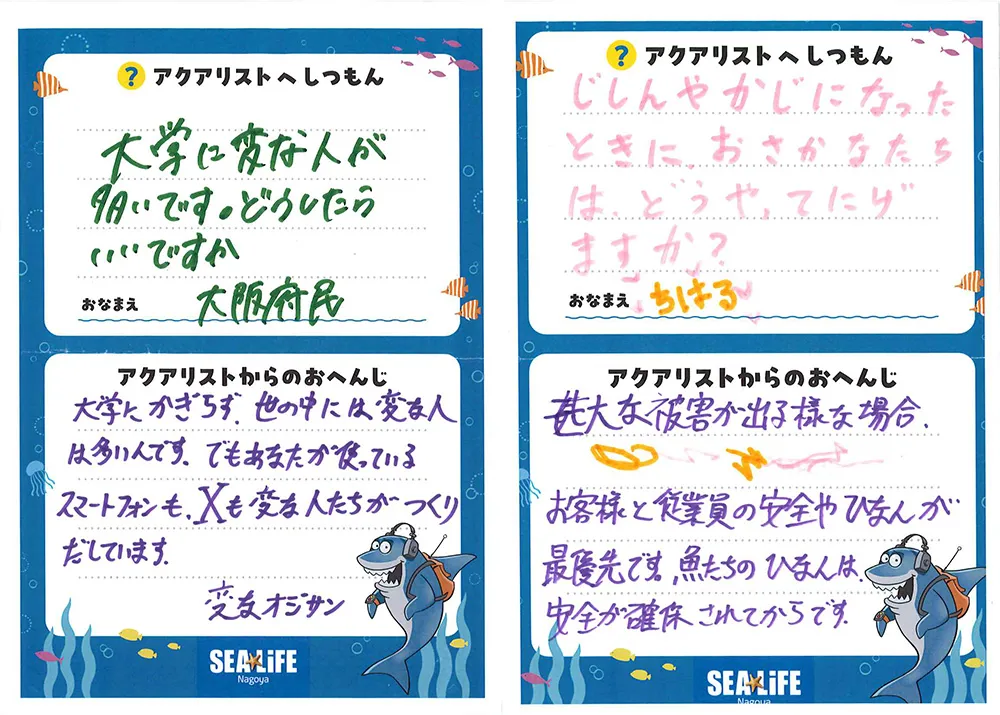 ? アクアリストへしつもん
大学に変な人が
多いです。どうしたら
いいですか
おなまえ 大阪府民
アクアリストからのおへんじ
大学に かぎらず、世の中には変な人
は多いんです。でもあなたが使っている
スマートフォンも、Xも変な人たちが つくり
だしています。
変なオジサン
SEA LiFE
Nagoya
? アクアリストへしつもん
じしんやかじになった
ときに、おさかなたち
は、どうや、てにげ
ますか?
おなまえ ちはる
アクアリストからのおへんじ
甚大な被害が出る様な場合、
お客様と従業員の安全やひなんが
最優先です。魚たちのひなんは、
安全が確保されてからです。
SEA LiFE
Nagoya